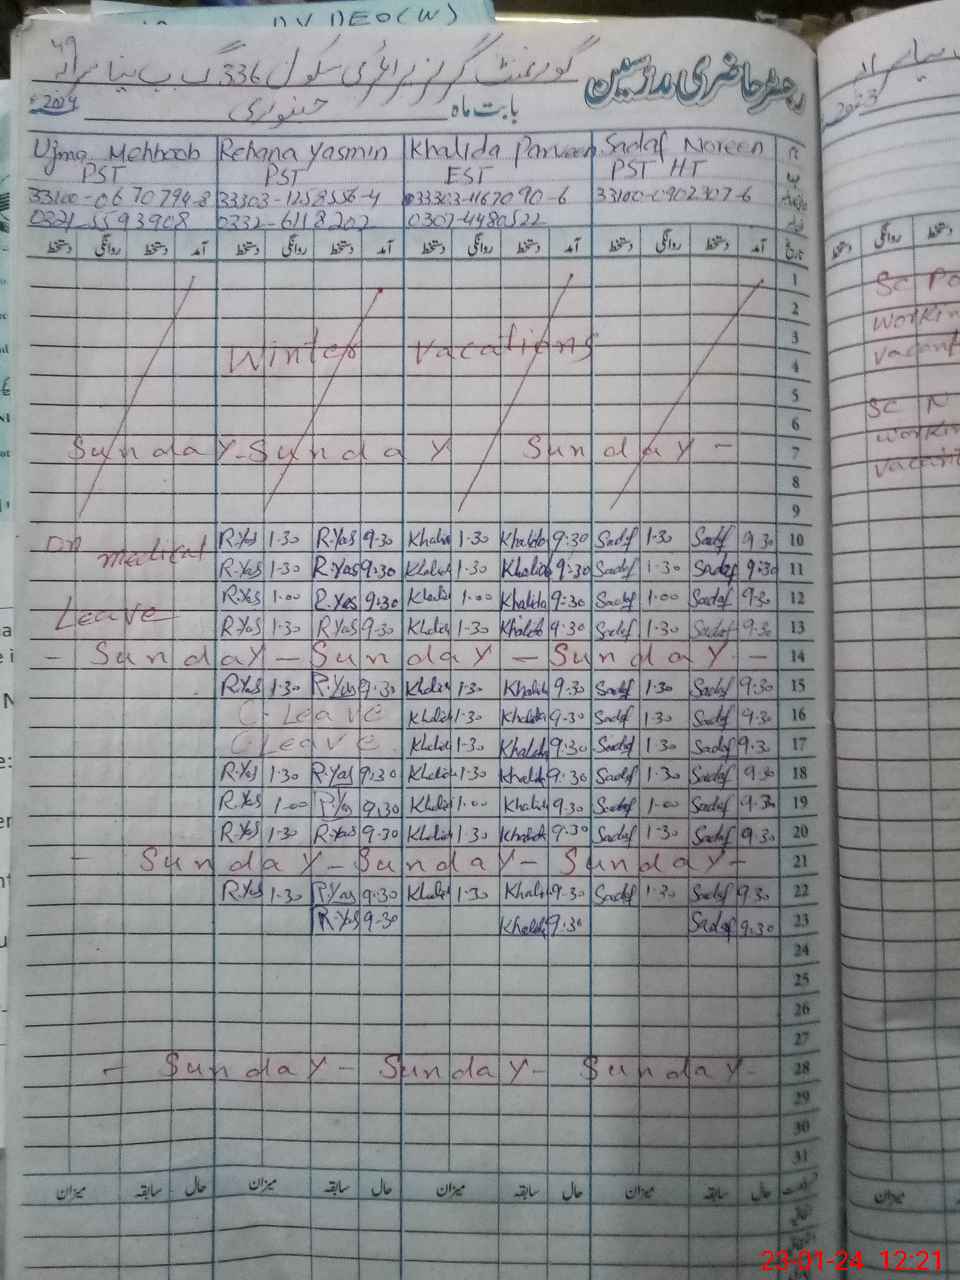 DY DEO(W)
49
گورنمنٹ گرلز پرائمری سکول 336 گ ب
رجسٹر حاضری مدرسین
2024
بابت ماہ جنوری
Uzma Mehboob Rehana Yasmin Khalida Parveen Sadaf Noreen
PST PST EST PST HT
33100-0670794-8 33303-1258556-4 33303-1167090-6 33100-0902307-6
0321-5593908 0332-6118202 0307-4480522
دستخط روانگی دستخط آمد دستخط روانگی دستخط آمد دستخط روانگی دستخط آمد دستخط روانگی دستخط آمد تاریخ
1
2
Winter vacations 3
4
5
6
Sunday-Sunday Sunday- 7
8
9
On medical R.Yas 1-30 R.Yas 9-30 Khalid 1-30 Khalida 9:30 Sadaf 1-30 Sadaf 9.30 10
R.Yas 1-30 R.Yas 9:30 Khalid 1-30 Khalida 9:30 Sadaf 1-30 Sadaf 9:30 11
Leave R.Yas 1.00 R.Yas 9:30 Khalid 1.00 Khalida 9:30 Sadaf 1.00 Sadaf 9.30 12
R.Yas 1-30 R.Yas 9-30 Khalid 1-30 Khalida 9.30 Sadaf 1-30 Sadaf 9-30 13
- Sunday - Sunday - Sunday - 14
R.Yas 1-30 R.Yas 9-30 Khalid 1-30 Khalid 9-30 Sadaf 1-30 Sadaf 9-30 15
C-Leave Khalid 1-30 Khalida 9-30 Sadaf 1-30 Sadaf 9.30 16
C Leave Khalid 1-30 Khalida 9.30 Sadaf 1-30 Sadaf 9.30 17
R.Yas 1-30 R.Yas 9:30 Khalid 1-30 Khalida 9.30 Sadaf 1-30 Sadaf 9.30 18
R.Yas 1-00 R.Yas 9.30 Khalid 1.00 Khalida 9.30 Sadaf 1-00 Sadaf 9.30 19
R.Yas 1-30 R.Yas 9.30 Khalid 1.30 Khalida 9-30 Sadaf 1-30 Sadaf 9.30 20
- Sunday - Sunday - Sunday - 21
R.Yas 1-30 R.Yas 9-30 Khalid 1-30 Khalid 9-30 Sadaf 1-30 Sadaf 9.30 22
R.Yas 9-30 Khalida 9:30 Sadaf 9.30 23
24
25
26
27
- Sunday - Sunday - Sunday - 28
29
30
31
میزان سابقہ حال میزان سابقہ حال میزان سابقہ حال میزان سابقہ حال
روانگی
SC
SC N
میزان
23-01-24 12:21